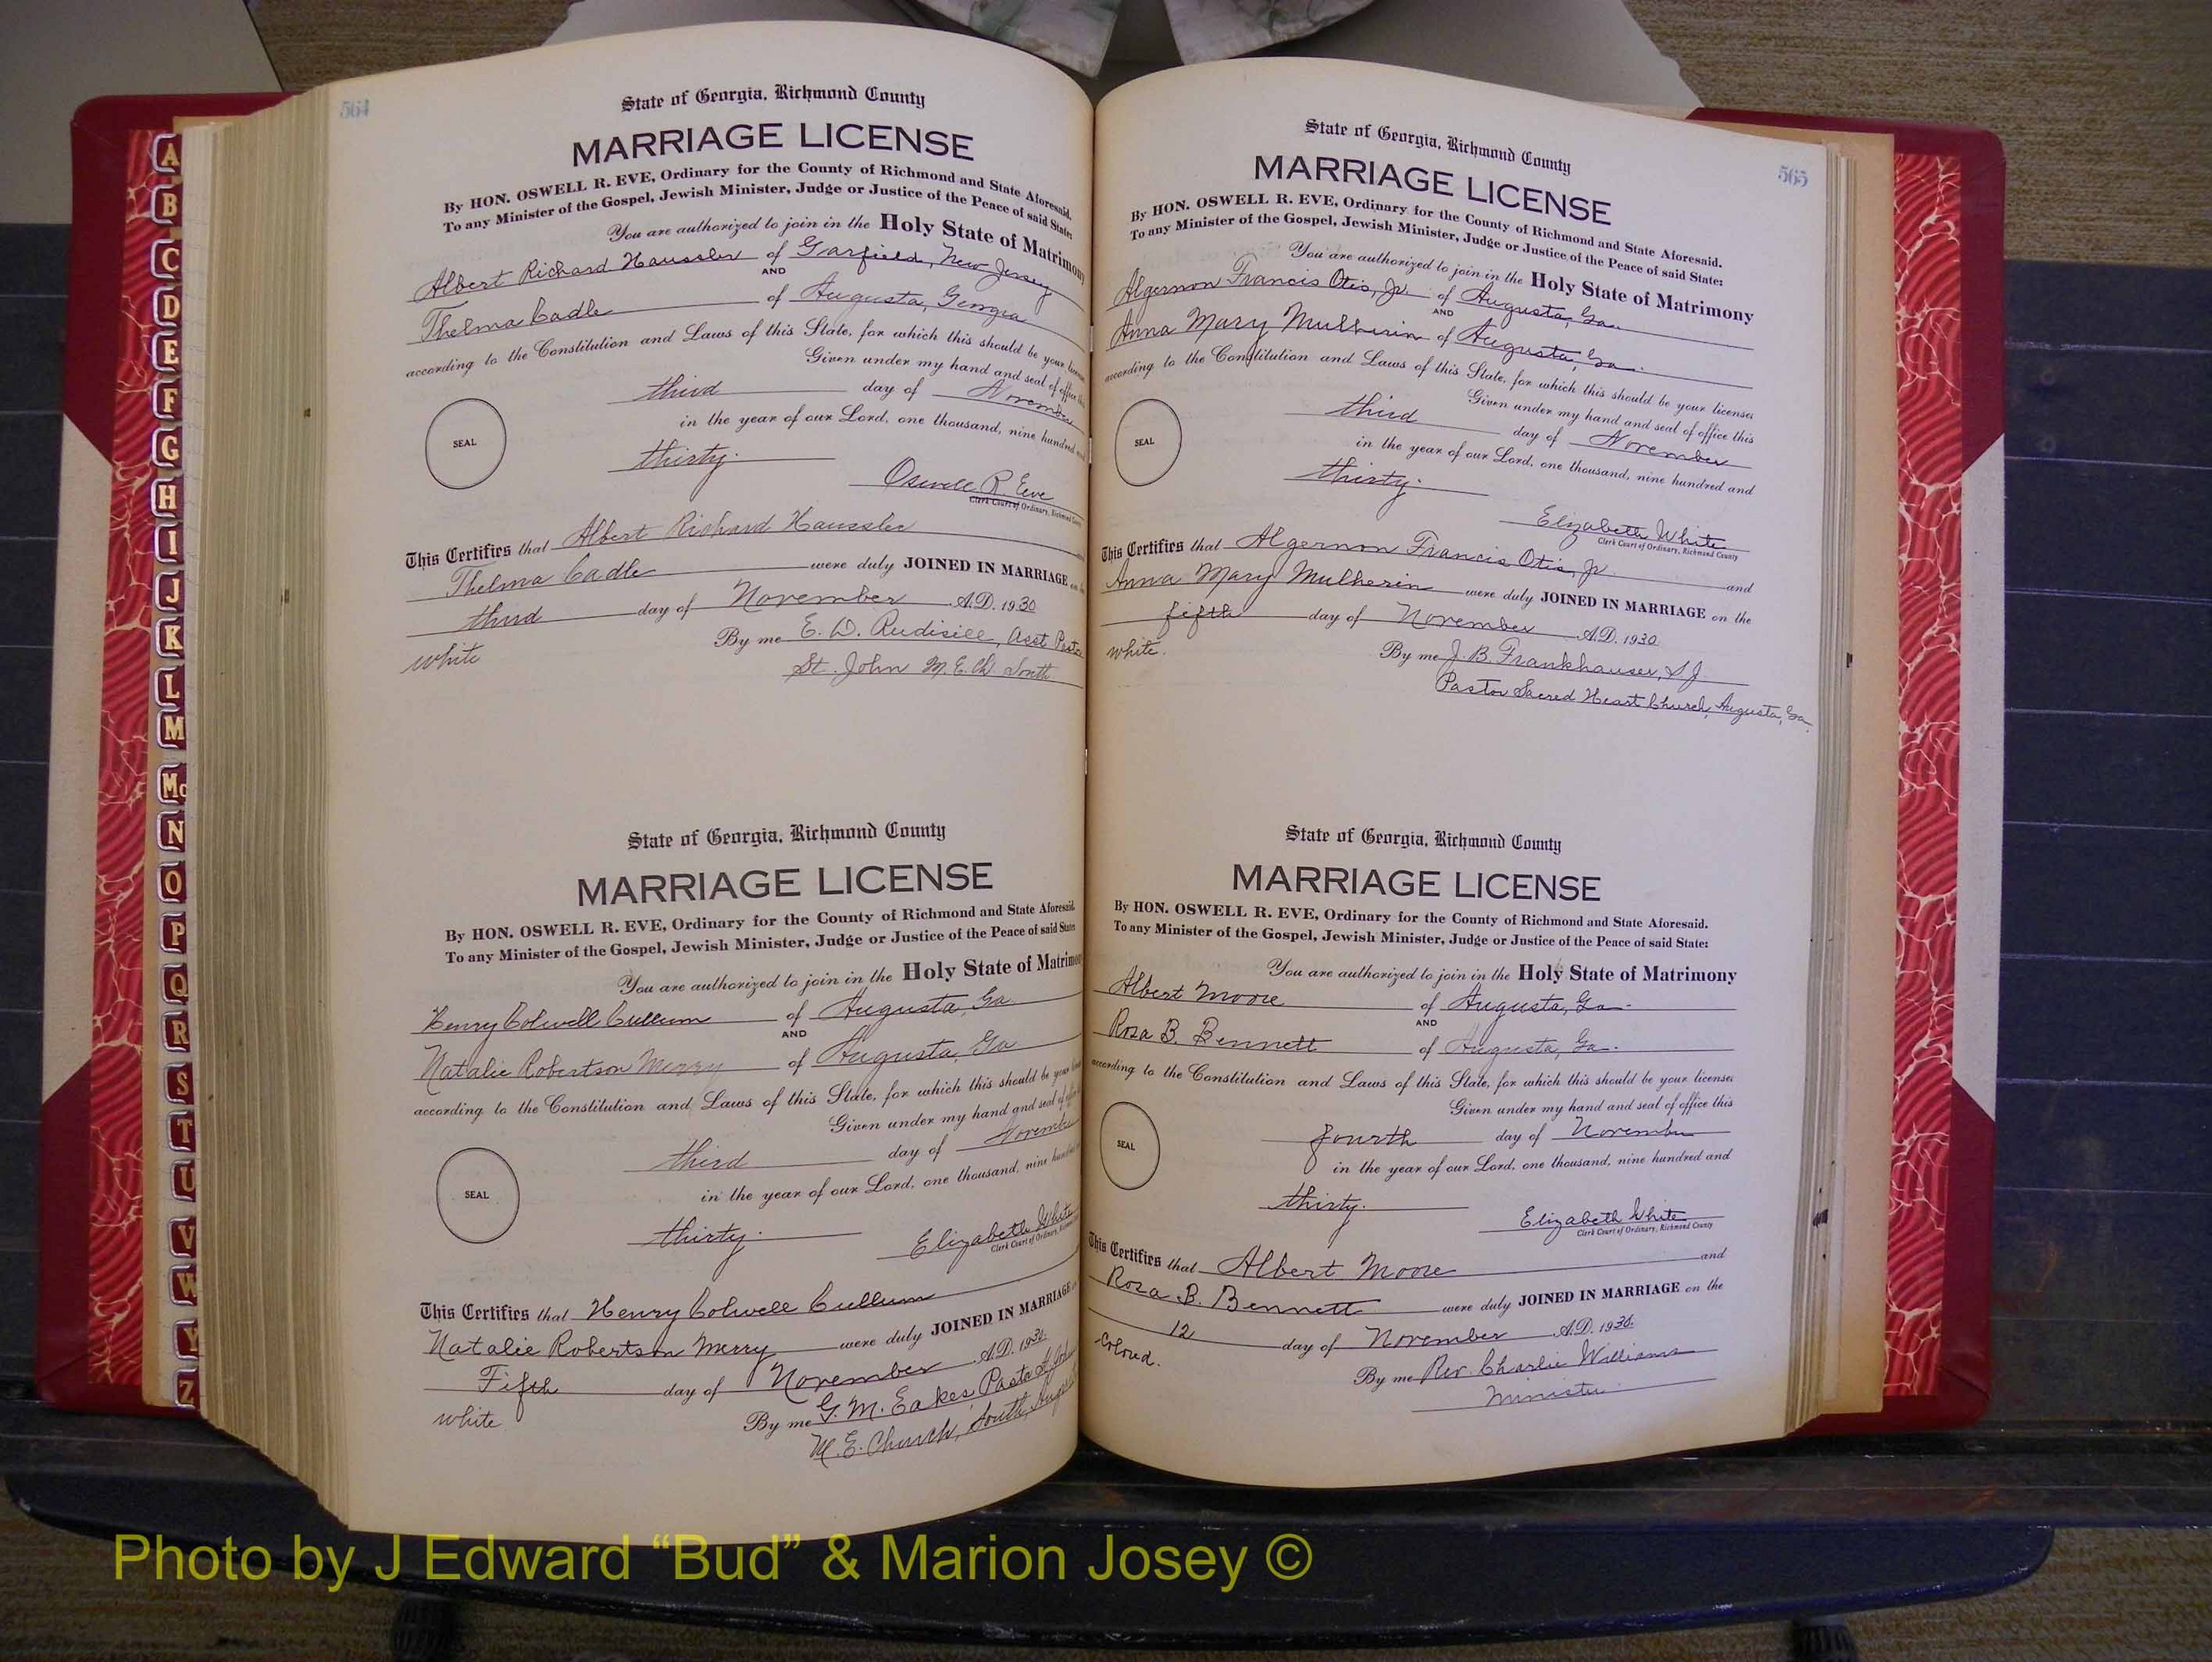 564
State of Georgia, Richmond County
MARRIAGE LICENSE
By HON. OSWELL R. EVE, Ordinary for the County of Richmond and State Aforesaid.
To any Minister of the Gospel, Jewish Minister, Judge or Justice of the Peace of said State:
You are authorized to join in the Holy State of Matrimony
Albert Richard Haussler of Garfield, New Jersey
AND
Thelma Cadle of Augusta, Georgia
according to the Constitution and Laws of this State, for which this should be your license
Given under my hand and seal of office this
third day of November
SEAL
in the year of our Lord, one thousand, nine hundred and
thirty.
Oswell R. Eve
Clerk Court of Ordinary, Richmond County
This Certifies that Albert Richard Haussler
Thelma Cadle were duly JOINED IN MARRIAGE on the
third day of November A.D. 1930
white
By me E. D. Rudisill, Asst Pastor
St. John M. E. Ch South
State of Georgia, Richmond County
MARRIAGE LICENSE
By HON. OSWELL R. EVE, Ordinary for the County of Richmond and State Aforesaid.
To any Minister of the Gospel, Jewish Minister, Judge or Justice of the Peace of said State:
You are authorized to join in the Holy State of Matrimony
Henry Colwell Cullum of Augusta, Ga
AND
Natalie Robertson Merry of Augusta, Ga
according to the Constitution and Laws of this State, for which this should be your
Given under my hand and seal of
third day of November
SEAL
in the year of our Lord, one thousand, nine hundred
thirty.
Elizabeth White
Clerk Court of Ordinary,
This Certifies that Henry Colwell Cullum
Natalie Robertson Merry were duly JOINED IN MARRIAGE
Fifth day of November A.D. 1930.
white
By me G. M. Eakes, Pastor St John
M. E. Church, South,
565
State of Georgia, Richmond County
MARRIAGE LICENSE
By HON. OSWELL R. EVE, Ordinary for the County of Richmond and State Aforesaid.
To any Minister of the Gospel, Jewish Minister, Judge or Justice of the Peace of said State:
You are authorized to join in the Holy State of Matrimony
Algernon Francis Otis, Jr. of Augusta, Ga.
AND
Anna Mary Mulherin of Augusta, Ga.
according to the Constitution and Laws of this State, for which this should be your license
Given under my hand and seal of office this
third day of November
SEAL
in the year of our Lord, one thousand, nine hundred and
thirty.
Elizabeth White
Clerk Court of Ordinary, Richmond County
This Certifies that Algernon Francis Otis, Jr. and
Anna Mary Mulherin were duly JOINED IN MARRIAGE on the
fifth day of November A.D. 1930
white.
By me J. B. Frankhauser, S J
Pastor Sacred Heart Church, Augusta, Ga.
State of Georgia, Richmond County
MARRIAGE LICENSE
By HON. OSWELL R. EVE, Ordinary for the County of Richmond and State Aforesaid.
To any Minister of the Gospel, Jewish Minister, Judge or Justice of the Peace of said State:
You are authorized to join in the Holy State of Matrimony
Albert Moore of Augusta, Ga.
AND
Rosa B. Bennett of Augusta, Ga.
according to the Constitution and Laws of this State, for which this should be your license
Given under my hand and seal of office this
fourth day of November
SEAL
in the year of our Lord, one thousand, nine hundred and
thirty.
Elizabeth White
Clerk Court of Ordinary, Richmond County
This Certifies that Albert Moore and
Rosa B. Bennett were duly JOINED IN MARRIAGE on the
12 day of November A.D. 1930.
Colored.
By me Rev. Charlie Williams
Minister
A
B
C
D
E
F
G
H
I
J
K
L
M
Mc
N
O
P
Q
R
S
T
U
V
W
Y
Z
Photo by J Edward “Bud” & Marion Josey ©